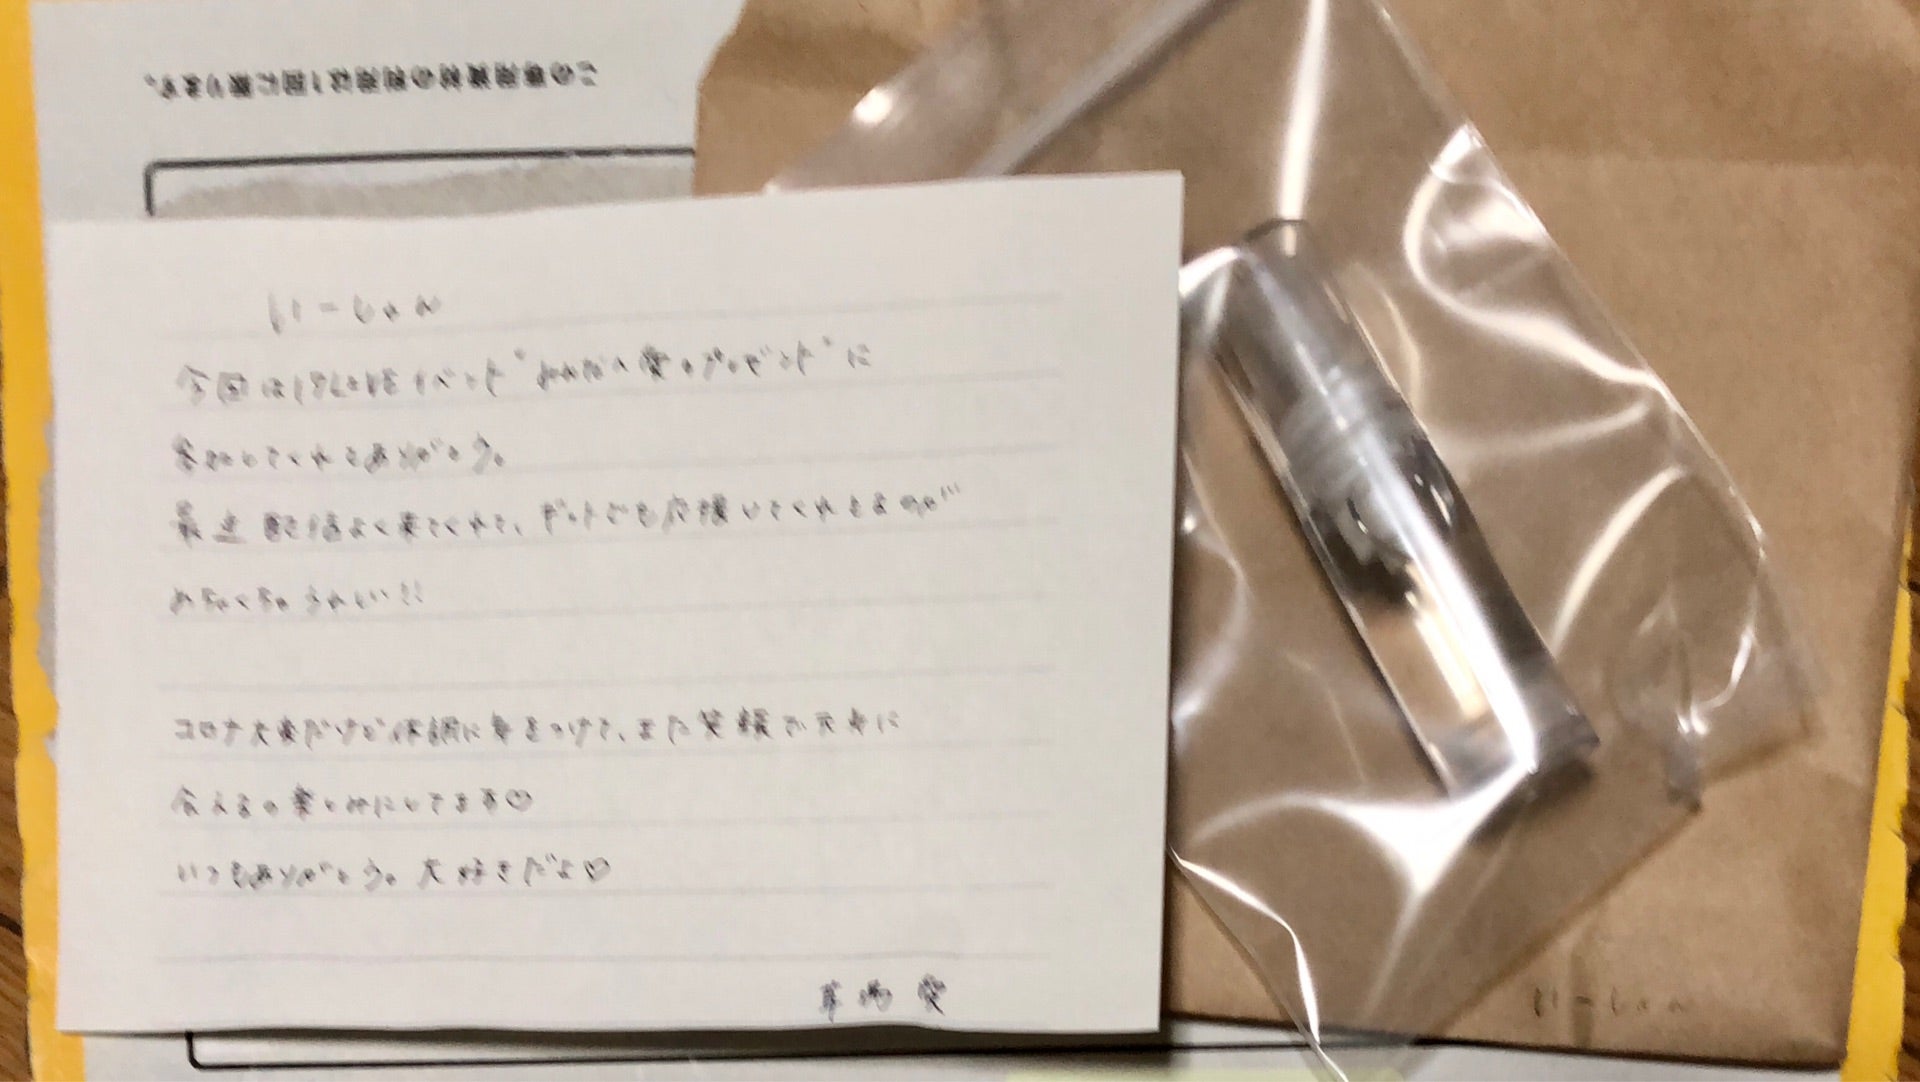 この専用資材の利用は1回に限ります。
いーしゃん
今回は17LIVEイベント"みんなへ愛のプレゼント"に
参加してくれてありがとう。
最近配信よく来てくれて、ギフトでも応援してくれてるのが
めちゃくちゃうれしい!!
コロナ大変だけど体調に気をつけて、また笑顔で元気に
会えるの楽しみにしてます♡
いつもありがとう。大好きだよ♡
愛
いーしゃん